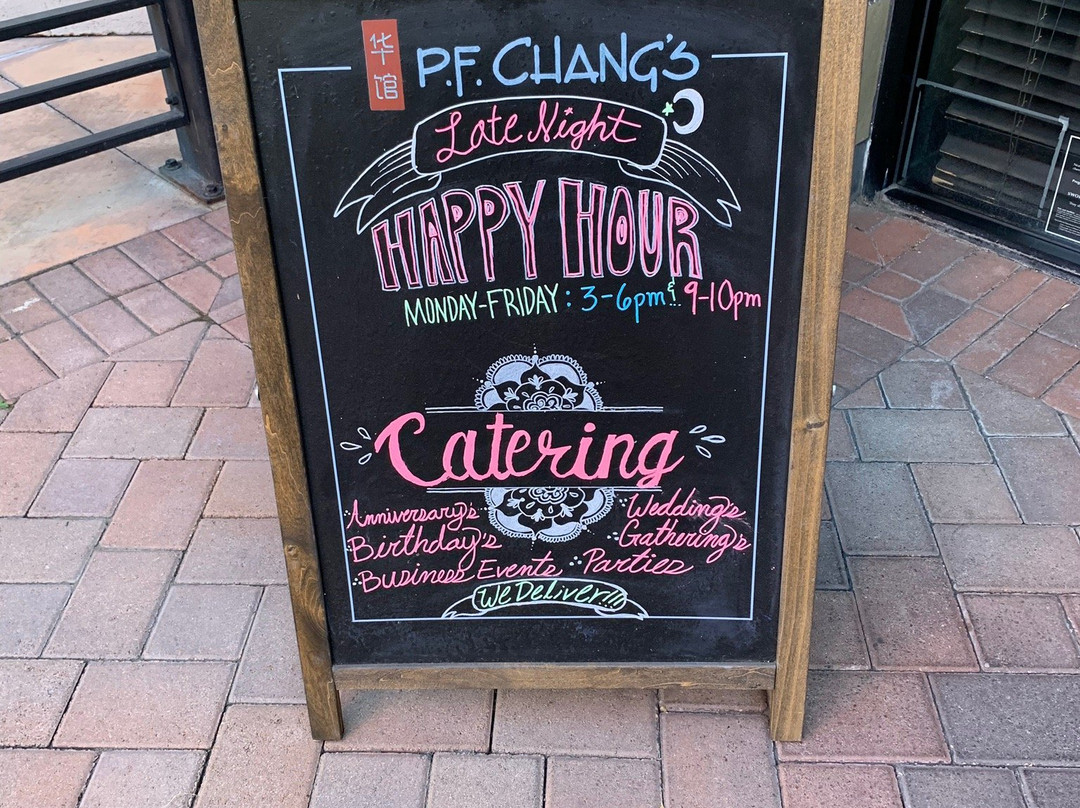 华馆
P.F. CHANG'S
Late Night
HAPPY HOUR
MONDAY-FRIDAY: 3-6pm & 9-10pm
Catering
Anniversary's Wedding's
Birthday's Gathering's
Business Events Parties
We Deliver!!!